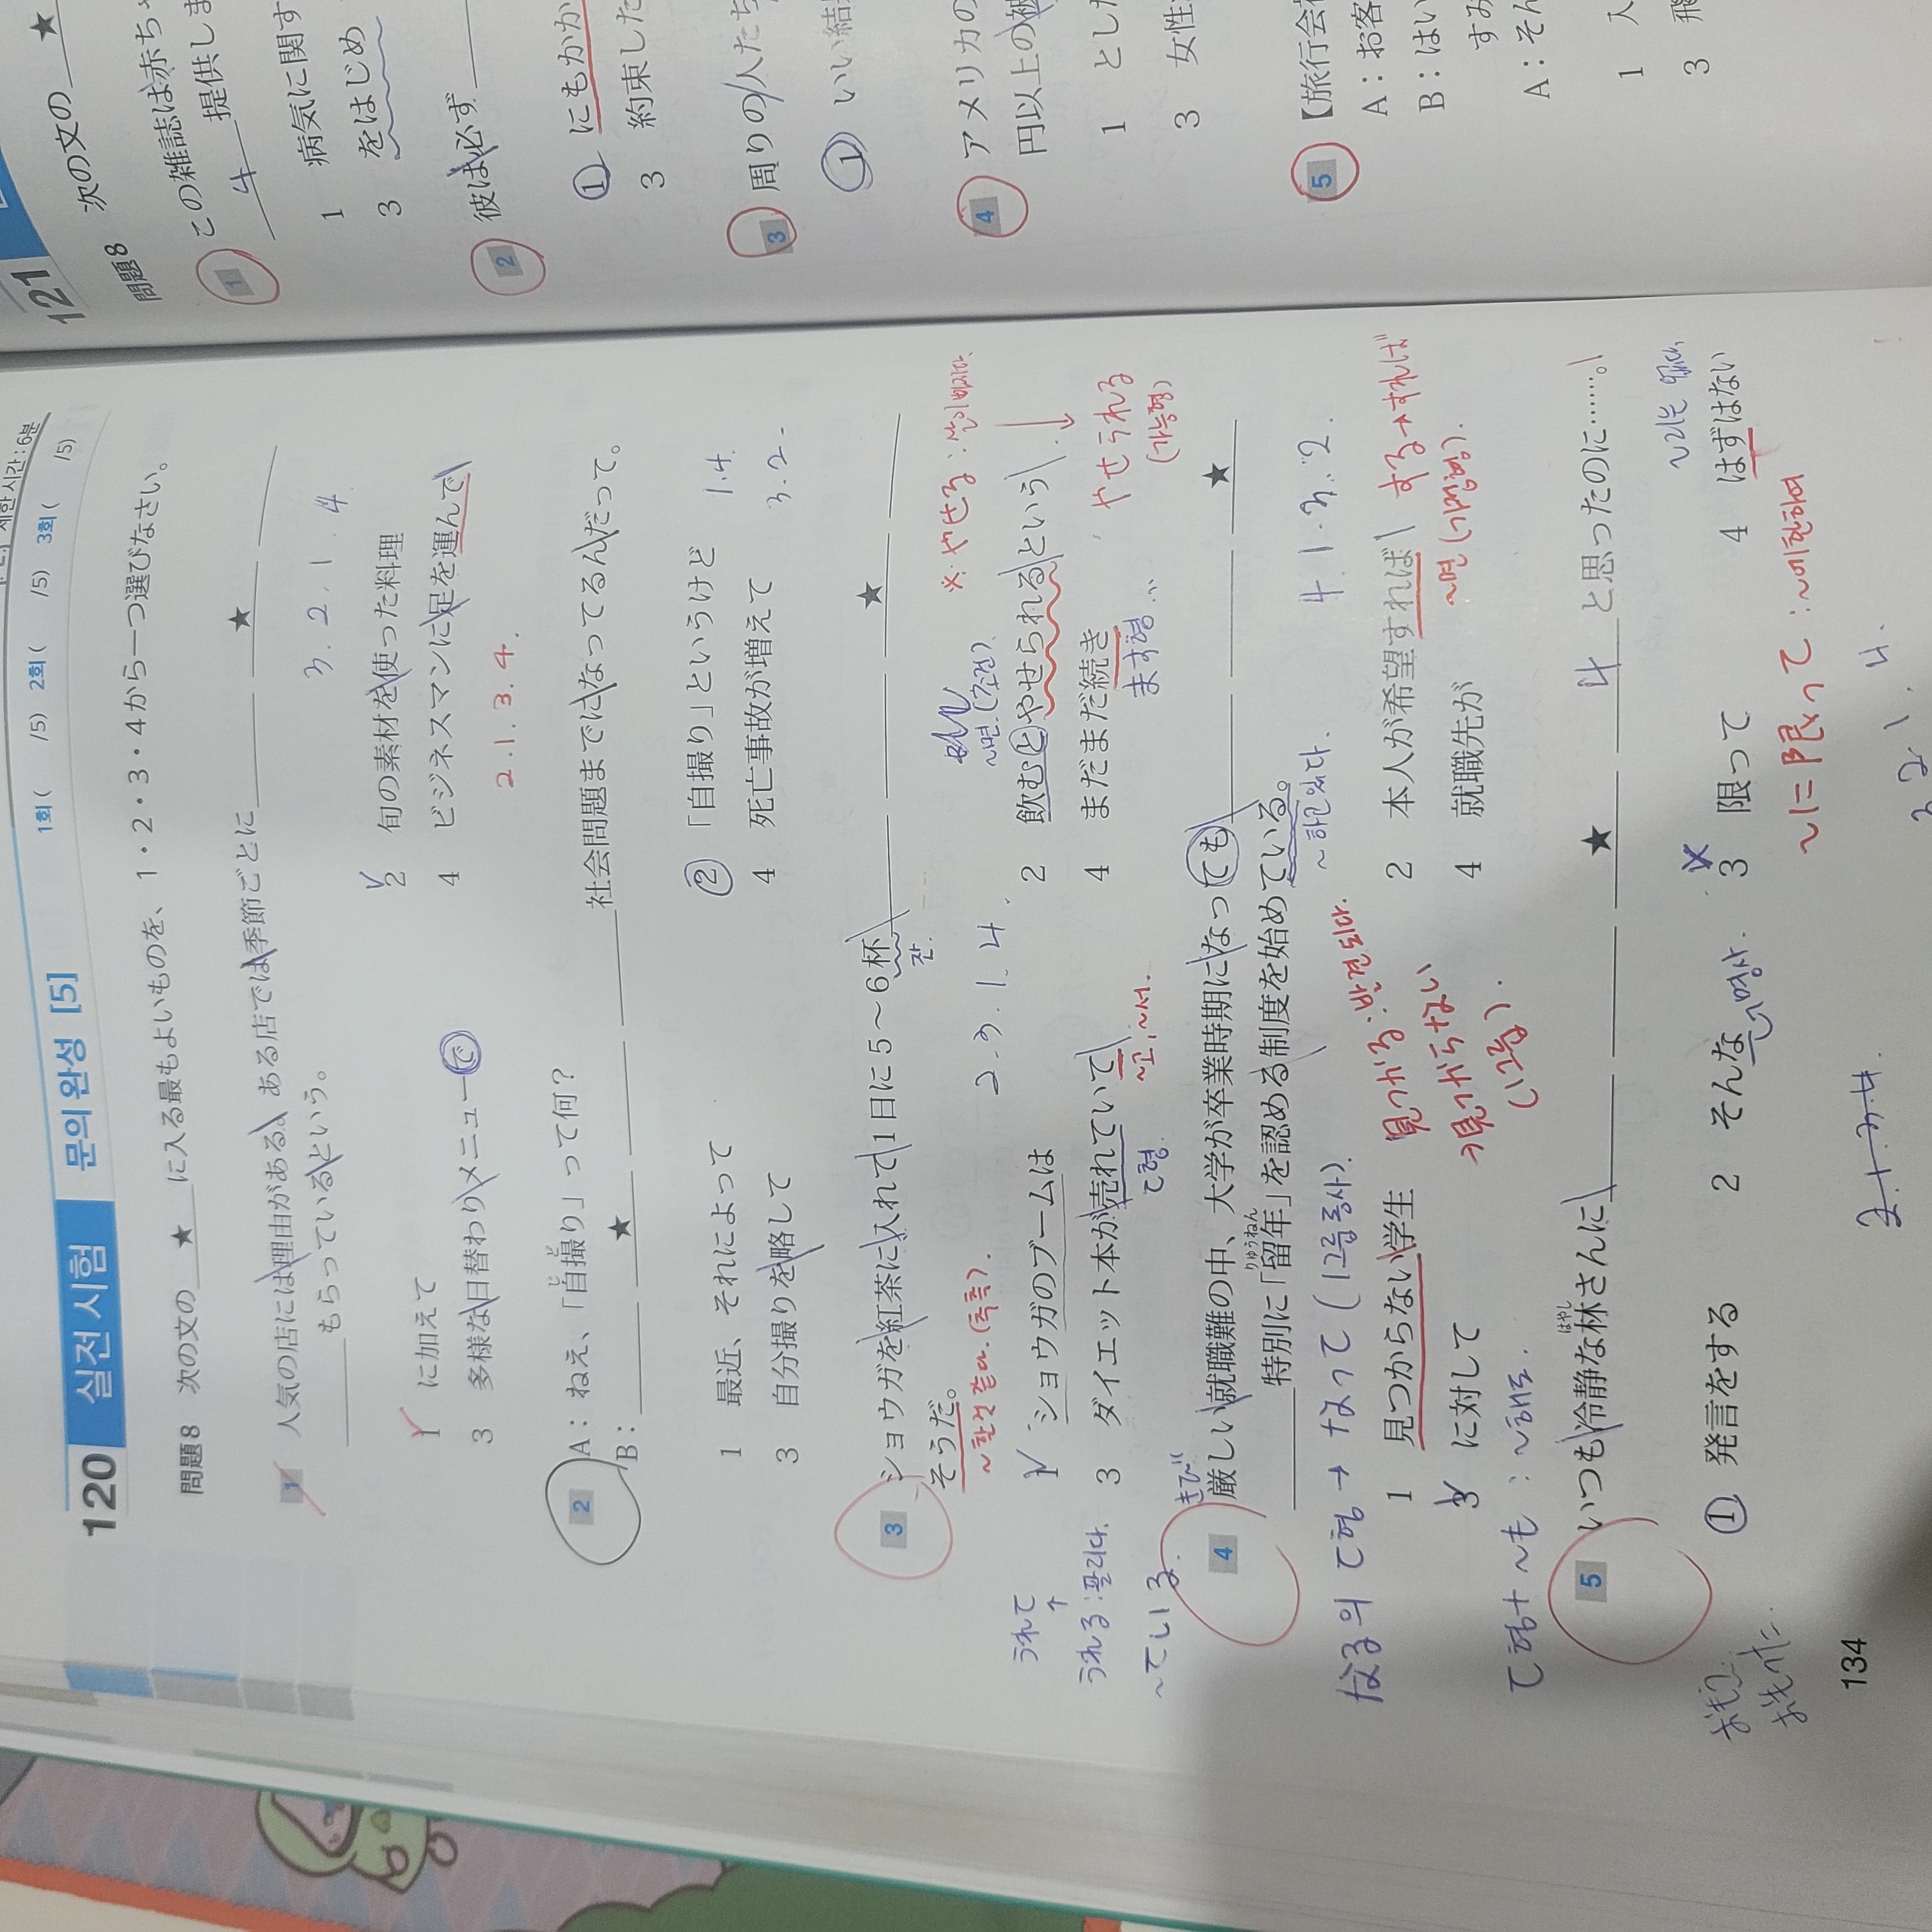 120 실전시험 문의 완성 [5]
제한 시간 : 6분
1회( /5) 2회( /5) 3회( /5)
問題8 次の文の ★ に入る最もよいものを、1・2・3・4から一つ選びなさい。
1 人気の店には理由がある。ある店では季節ごとに ★
もらっているという。
3. 2. 1. 4
1 に加えて
2 旬の素材を使った料理
3 多様な日替わりメニューで
4 ビジネスマンに足を運んで
2. 1. 3. 4.
2 A：ねえ、「自撮り」って何？
B： ★ 社会問題までになってるんだって。
1 最近、それによって
2 「自撮り」というけど
1. 4.
3 自分撮りを略して
4 死亡事故が増えて
3. 2.
3 ショウガを紅茶に入れて1日に5～6杯 ★
잔
そうだ。
~한것 같다. (추측).
~면 (조건).
※ やせる : 살이빠지다.
1 ショウガのブームは
2 飲むとやせられるという
2. 3. 1. 4.
3 ダイエット本が売れていて
~고, ~서.
て형
4 まだまだ続き
ます형
やせられる
(가능형)
うれて
↑
うれる : 팔리다.
~ている
4 厳しい就職難の中、大学が卒業時期になっても ★
きび
特別に「留年」を認める制度を始めている。
りゅうねん
~하고 있다.
4. 1. 3. 2.
なるの て형 → なって (1그룹 동사).
1 見つからない学生
見つかる : 발견되다.
見つからない
(1그룹).
2 本人が希望すれば
する→すれば
~면 (가정형).
3 に対して
4 就職先が
て형+ ~も : ~해도.
5 いつも冷静な林さんに ★ 4 と思ったのに……。
はやし
1 発言をする
2 そんな
명사
3 限って
4 はずはない
~に限って : ~에 한하여
134
121
問題8 次の文の ★
1 この雑誌は赤ち
4 提供しま
1 病気に関す
3 をはじめ
2 彼は必ず
1 にもかか
3 約束した
3 周りの人たち
1 いい結
4 アメリカの
円以上の被
1 とした
3 女性
5 【旅行会
A：お客
B：はい
すみ
A：そん
1 入
3 飛